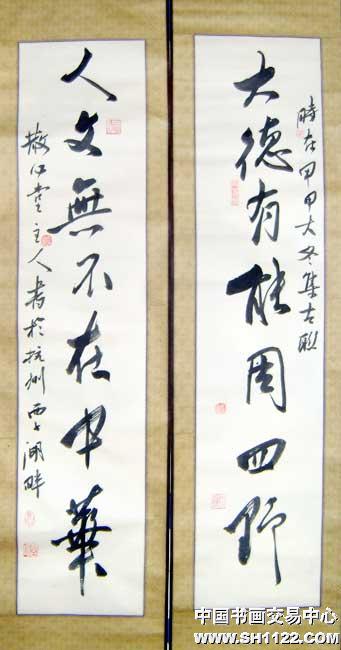 時在甲申大冬集古联
大德有能周四野
人文無不在中華
堂主人書於杭州西子湖畔
中国书画交易中心
www.SH1122.com